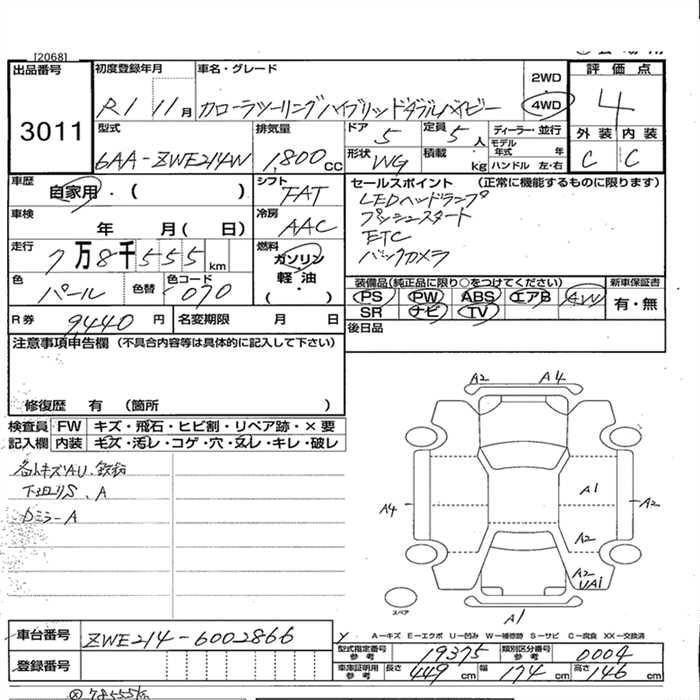 [2068]
出品番号
3011
初度登録年月
R1 11月
車名・グレード
カローラツーリングハイブリッドダブルバイビー
2WD
4WD
評価点
4
外装 内装
C C
型式
6AA-ZWE214W
排気量
1,800cc
ドア
5
定員
5人
形状
WG
積載
kg
ディーラー・並行
モデル年式 年
ハンドル 左・右
車歴
自家用・( )
シフト
FAT
車検
年 月( 日)
冷房
AAC
走行
7万8千555km
燃料
ガソリン
軽油
( ・ )
色
パール
色替
色コード
070
R券
9440円
名変期限 月 日
セールスポイント (正常に機能するものに限ります)
LEDヘッドランプ
プッシュスタート
ETC
バックカメラ
装備品(純正品に限り○をつけてください)
PS PW ABS エアB AW
SR ナビ TV
新車保証書
有・無
後日品
注意事項申告欄 (不具合内容等は具体的に記入して下さい)
修復歴 有 (箇所 )
検査員記入欄
FW キズ・飛石・ヒビ割・リペア跡・×要
内装 キズ・汚レ・コゲ・穴・スレ・キレ・破レ
各小キズA.U、飲粉
下回りS、A
DミラーA
A2 A4
A1
A4
A2
A2
A2
UA1
A1
スペア
A-キズ E-エクボ U-凹み W-補修跡 S-サビ C-腐食 XX-交換済
車台番号
ZWE214-6002866
登録番号
型式指定番号 参考
19375
類別区分番号 参考
0004
車庫証明用 参考
長さ 449cm
幅 174cm
高さ 146cm
78555km